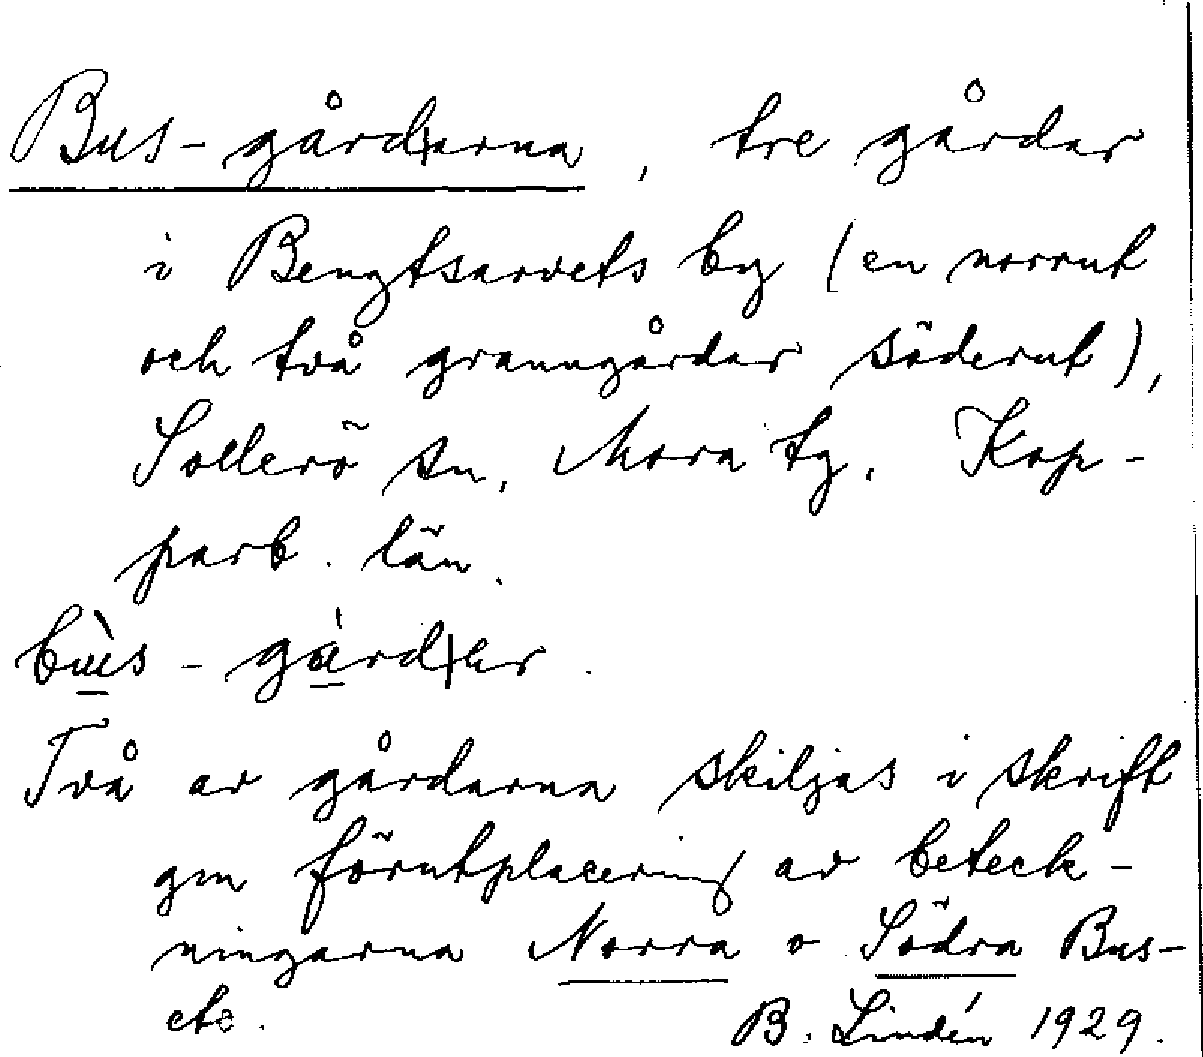 Bus-gård|erna, tre gårdar
i Bengtsarvets by (en norrut
och två granngårdar söderut),
Sollerö sn, Mora tg. Kop-
parb. län.
bùs-gàrd|er.
Två av gårdarna skiljas i skrift
gm förutplacering av beteck-
ningarna Norra o Södra Bus-
etc. B. Lindén 1929.